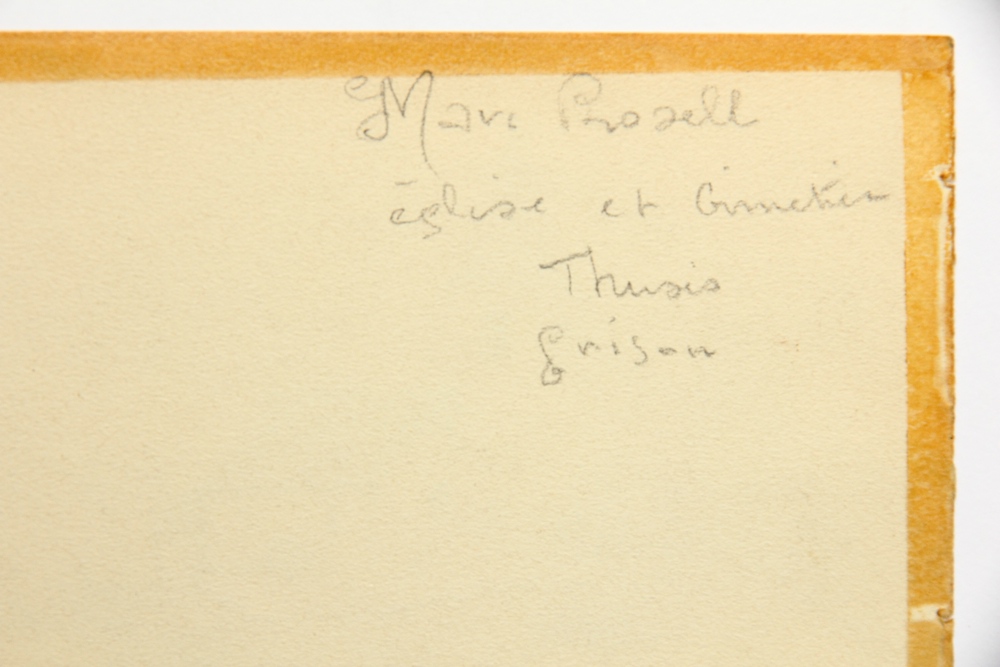 Marc Rosell
église et Cimetière
Thusis
Grison